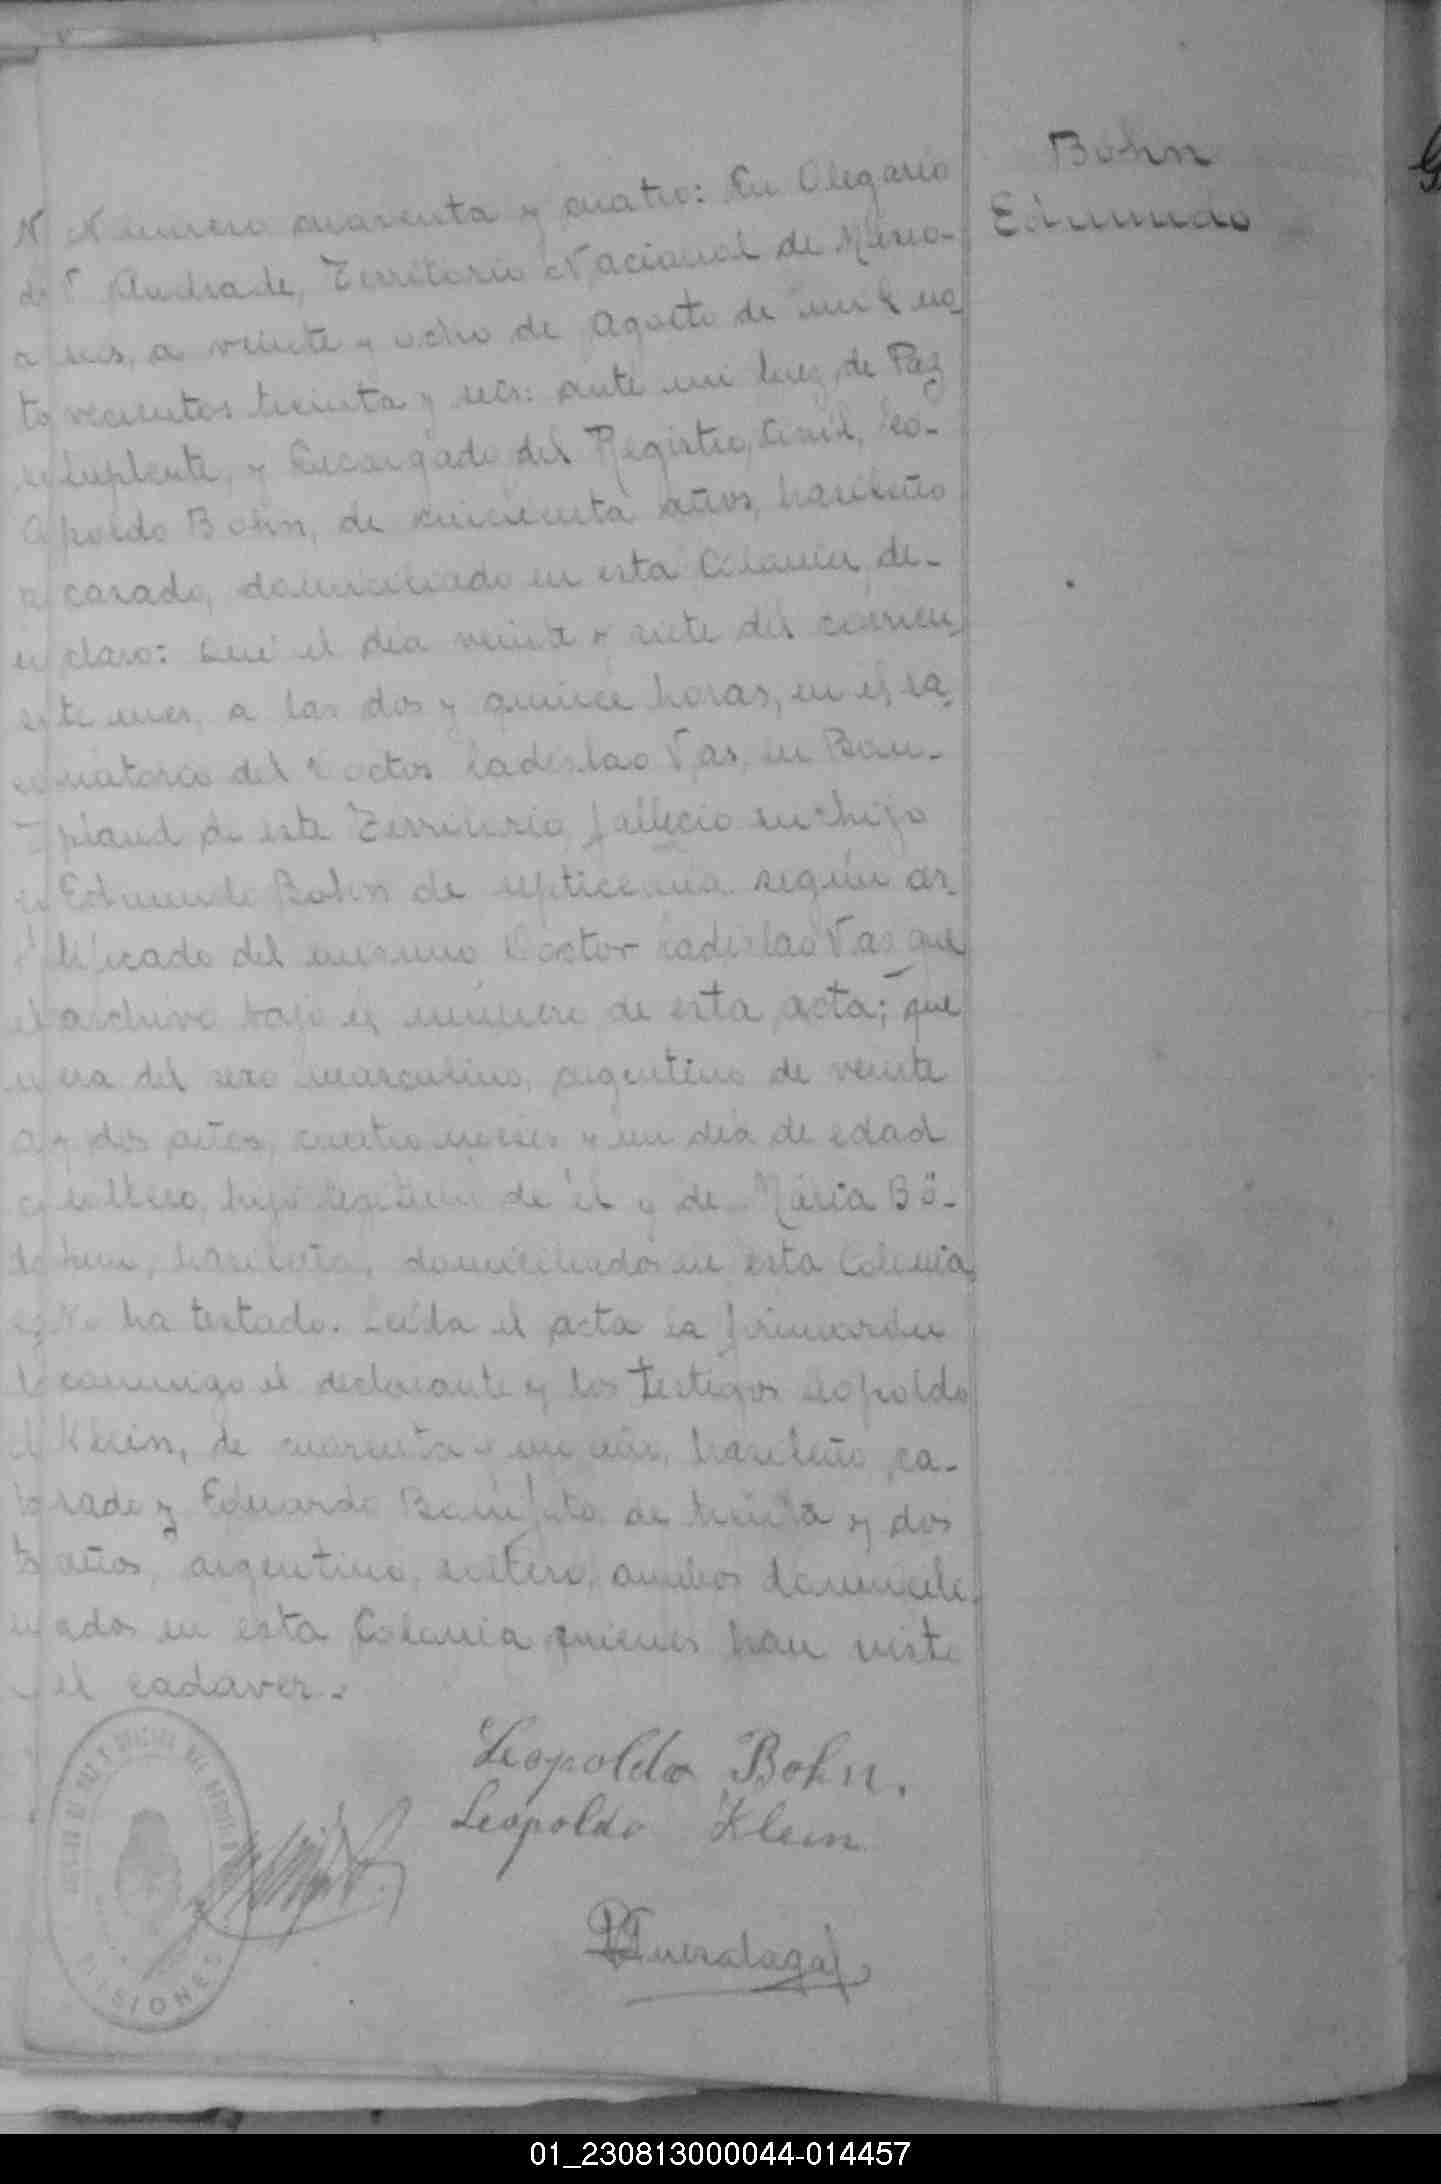 Bohn
Edmundo
Numero cuarenta y cuatro: En Olegario
V. Andrade, Territorio Nacional de Misio-
nes, a veinte y ocho de Agosto de mil no-
vecientos treinta y seis: ante mi Juez de Paz
suplente, y Encargado del Registro Civil, Leo-
poldo Bohn, de cincuenta años, brasileño
casado, domiciliado en esta Colonia, de-
claro: que el dia veinte y siete del corrien-
te mes, a las dos y quince horas, en el sa-
natorio del Doctor Ladislao Vas, en Bon-
pland de este Territorio, fallecio su hijo
Edmundo Bohn de septicemia segun cer-
tificado del mismo Doctor Ladislao Vas que
archivo bajo el numero de esta acta; que
era del sexo masculino, argentino de veinte
y dos años, cuatro meses y un dia de edad
soltero, hijo legitimo de él y de Maria Bö-
brasileña, domiciliados en esta Colonia.
No ha testado. Leida el acta la firmaron
conmigo el declarante y los testigos Leopoldo
Klein, de cuarenta y un años, brasileño, ca-
sado y Eduardo de treinta y dos
años, argentino, soltero, ambos domicili-
ados en esta Colonia quienes han visto
el cadaver.-
Leopoldo Bohn.
Leopoldo Klein
MISIONES
01_230813000044-014457